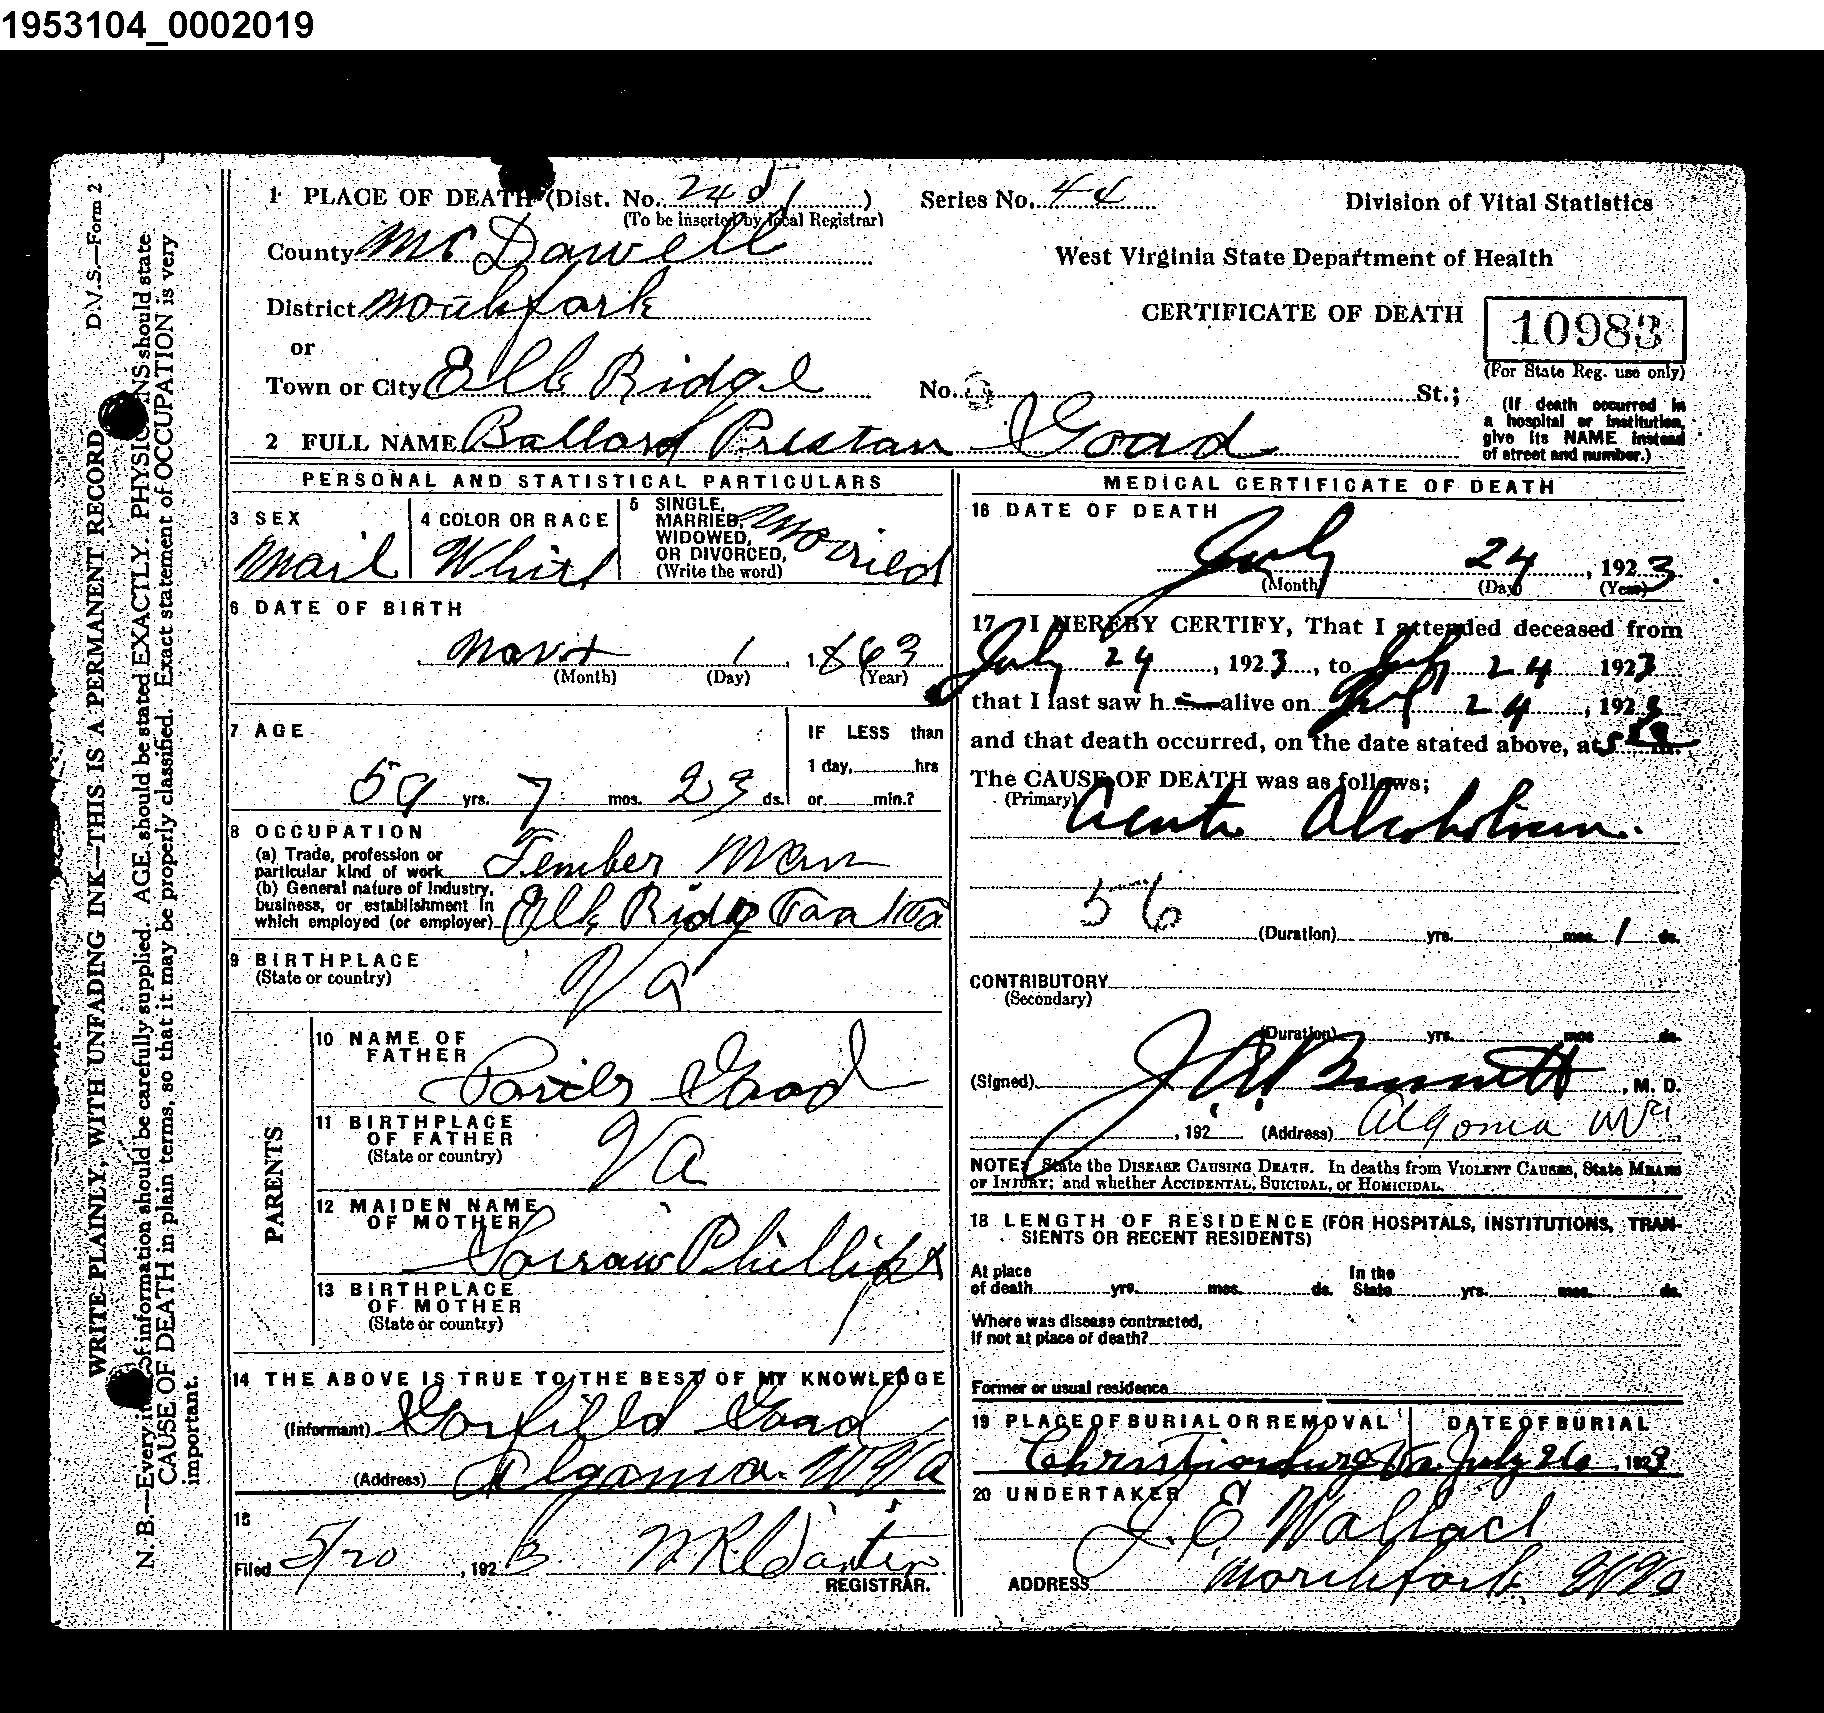 1953104_0002019
D.V.S.—Form 2
WRITE PLAINLY, WITH UNFADING INK—THIS IS A PERMANENT RECORD
N. B.—Every item of information should be carefully supplied. AGE should be stated EXACTLY. PHYSICIANS should state
CAUSE OF DEATH in plain terms, so that it may be properly classified. Exact statement of OCCUPATION is very
important.
1 PLACE OF DEATH (Dist. No. 2401) Series No. 44 Division of Vital Statistics
(To be inserted by local Registrar)
County McDowell West Virginia State Department of Health
District Northfork CERTIFICATE OF DEATH 10983
or (For State Reg. use only)
Town or City Elk Ridge No. St.;
(If death occurred in
a hospital or institution,
give its NAME instead
of street and number.)
2 FULL NAME Ballard Preston Goad
PERSONAL AND STATISTICAL PARTICULARS
3 SEX
Mail
4 COLOR OR RACE
Whit
5 SINGLE,
MARRIED,
WIDOWED,
OR DIVORCED,
(Write the word)
Married
6 DATE OF BIRTH
1 , 1863
(Month) (Day) (Year)
7 AGE
59 yrs. 7 mos. 23 ds.
IF LESS than
1 day, hrs
or min.?
8 OCCUPATION
(a) Trade, profession or
particular kind of work Tember Man
(b) General nature of Industry,
business, or establishment in
which employed (or employer) Elk Ridg
9 BIRTHPLACE
(State or country)
Va
PARENTS
10 NAME OF
FATHER
Goad
11 BIRTHPLACE
OF FATHER
(State or country)
Va
12 MAIDEN NAME
OF MOTHER
Phillips
13 BIRTHPLACE
OF MOTHER
(State or country)
14 THE ABOVE IS TRUE TO THE BEST OF MY KNOWLEDGE
(Informant) Garfield Goad
(Address) Algoma W Va
15
Filed 5/20, 1923
REGISTRAR.
MEDICAL CERTIFICATE OF DEATH
16 DATE OF DEATH
July 24, 1923
(Month) (Day) (Year)
17 I HEREBY CERTIFY, That I attended deceased from
July 24, 1923, to July 24 1923
that I last saw h alive on July 24, 1923
and that death occurred, on the date stated above, at 5 m.
The CAUSE OF DEATH was as follows;
(Primary) Acute Alcoholism.
56
(Duration) yrs. mos. 1 ds.
CONTRIBUTORY
(Secondary)
(Duration) yrs. mos ds.
(Signed) , M. D.
, 192 (Address) Algoma W Va
NOTE: State the DISEASE CAUSING DEATH. In deaths from VIOLENT CAUSES, State MEANS
OF INJURY; and whether ACCIDENTAL, SUICIDAL, or HOMICIDAL.
18 LENGTH OF RESIDENCE (FOR HOSPITALS, INSTITUTIONS, TRAN-
SIENTS OR RECENT RESIDENTS)
At place
of death yrs. mos. ds.
In the
State yrs. mos. ds.
Where was disease contracted,
If not at place of death?
Former or usual residence
19 PLACE OF BURIAL OR REMOVAL DATE OF BURIAL
Christiansburg Va July 26 1923
20 UNDERTAKER
J. E. Wallace
ADDRESS Northfork W Va